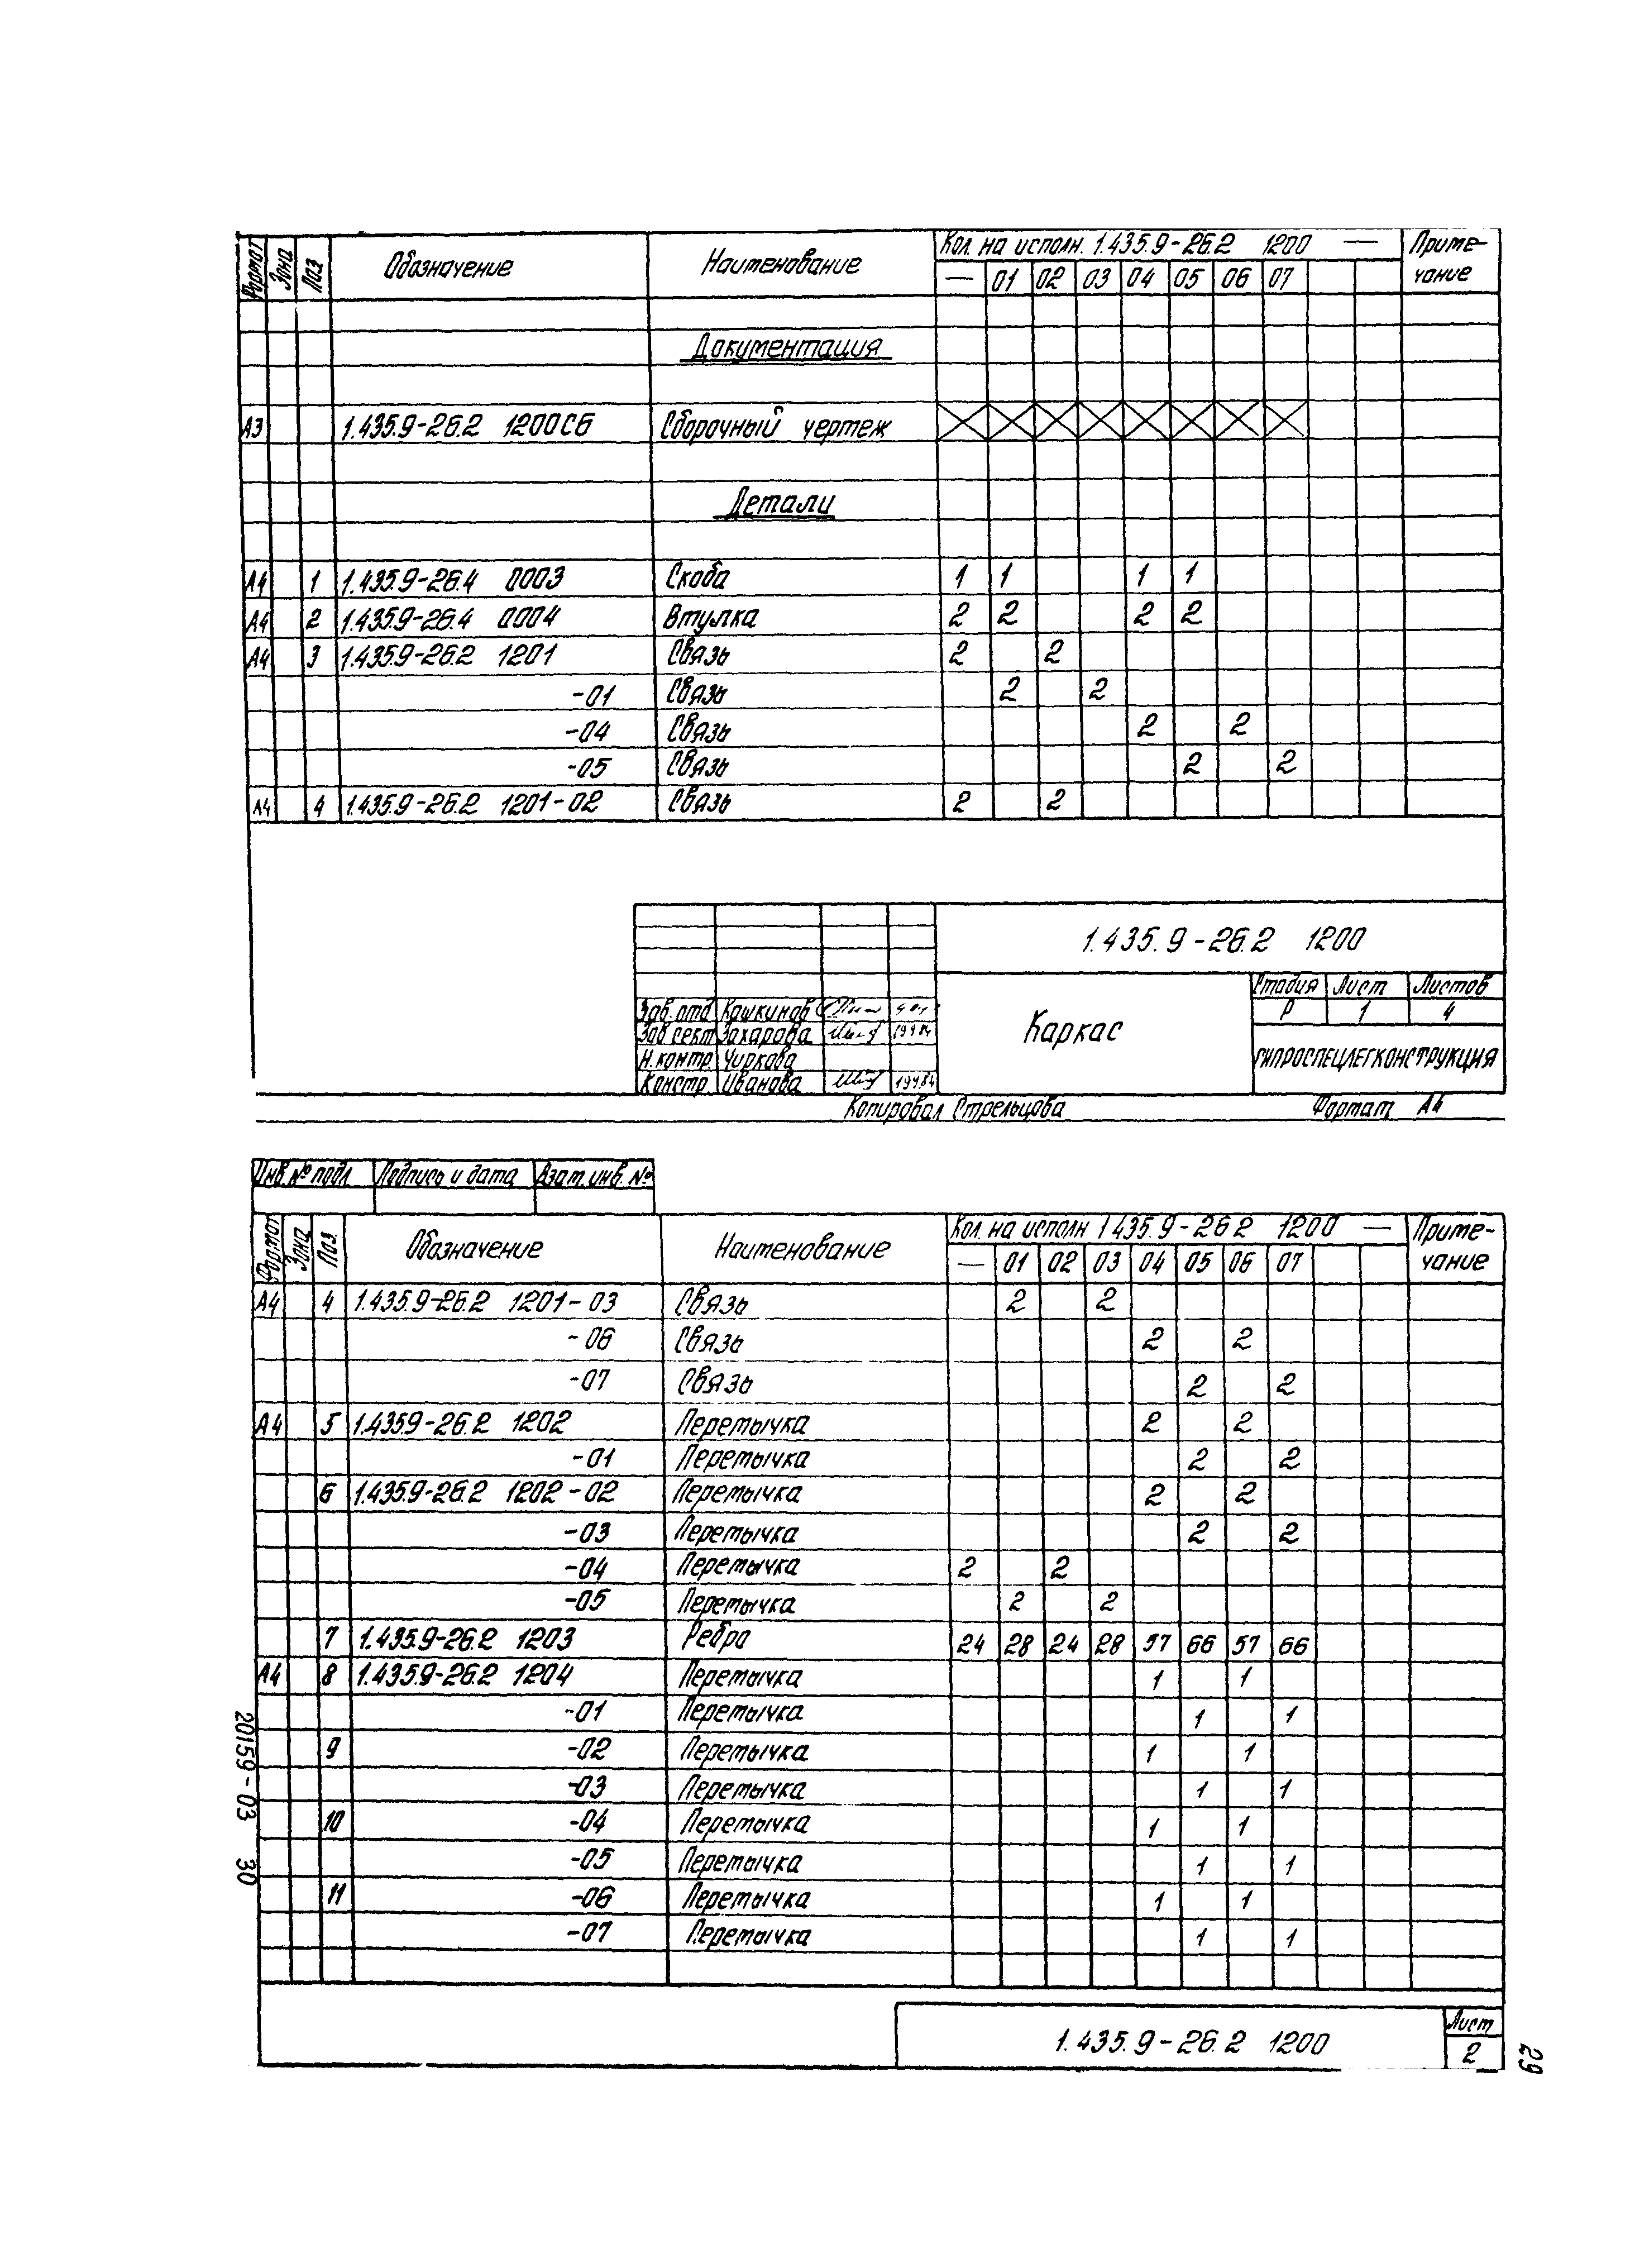 Формат Зона Поз Обозначение Наименование Кол. на исполн. 1.435.9-26.2 1200 — Приме-
— 01 02 03 04 05 06 07 чание
Документация
А3 1.435.9-26.2 1200СБ Сборочный чертеж
Детали
А4 1 1.435.9-26.4 0003 Скоба 1 1 1 1
А4 2 1.435.9-26.4 0004 Втулка 2 2 2 2
А4 3 1.435.9-26.2 1201 Связь 2 2
-01 Связь 2 2
-04 Связь 2 2
-05 Связь 2 2
А4 4 1.435.9-26.2 1201-02 Связь 2 2
1.435.9-26.2 1200
Стадия Лист Листов
Зав. отд Кашкинов Р 1 4
Зав сект Захарова 19.9.84 Каркас
Н.контр. Чиркова ГИПРОСПЕЦЛЕГКОНСТРУКЦИЯ
Констр Иванова 19.9.84
Копировал Стрельцова Формат А4
Инв. № подл Подпись и дата Взам. инв. №
Формат Зона Поз. Обозначение Наименование Кол. на исполн 1435.9-26.2 1200 — Приме-
— 01 02 03 04 05 06 07 чание
А4 4 1.435.9-26.2 1201-03 Связь 2 2
-06 Связь 2 2
-07 Связь 2 2
А4 5 1.4359-26.2 1202 Перемычка 2 2
-01 Перемычка 2 2
6 1.435.9-26.2 1202-02 Перемычка 2 2
-03 Перемычка 2 2
-04 Перемычка 2 2
-05 Перемычка 2 2
7 1.435.9-26.2 1203 Ребро 24 28 24 28 57 66 57 66
А4 8 1.435.9-26.2 1204 Перемычка 1 1
-01 Перемычка 1 1
9 -02 Перемычка 1 1
-03 Перемычка 1 1
10 -04 Перемычка 1 1
-05 Перемычка 1 1
11 -06 Перемычка 1 1
-07 Перемычка 1 1
20159-03 30
1.435.9-26.2 1200 Лист
2
29